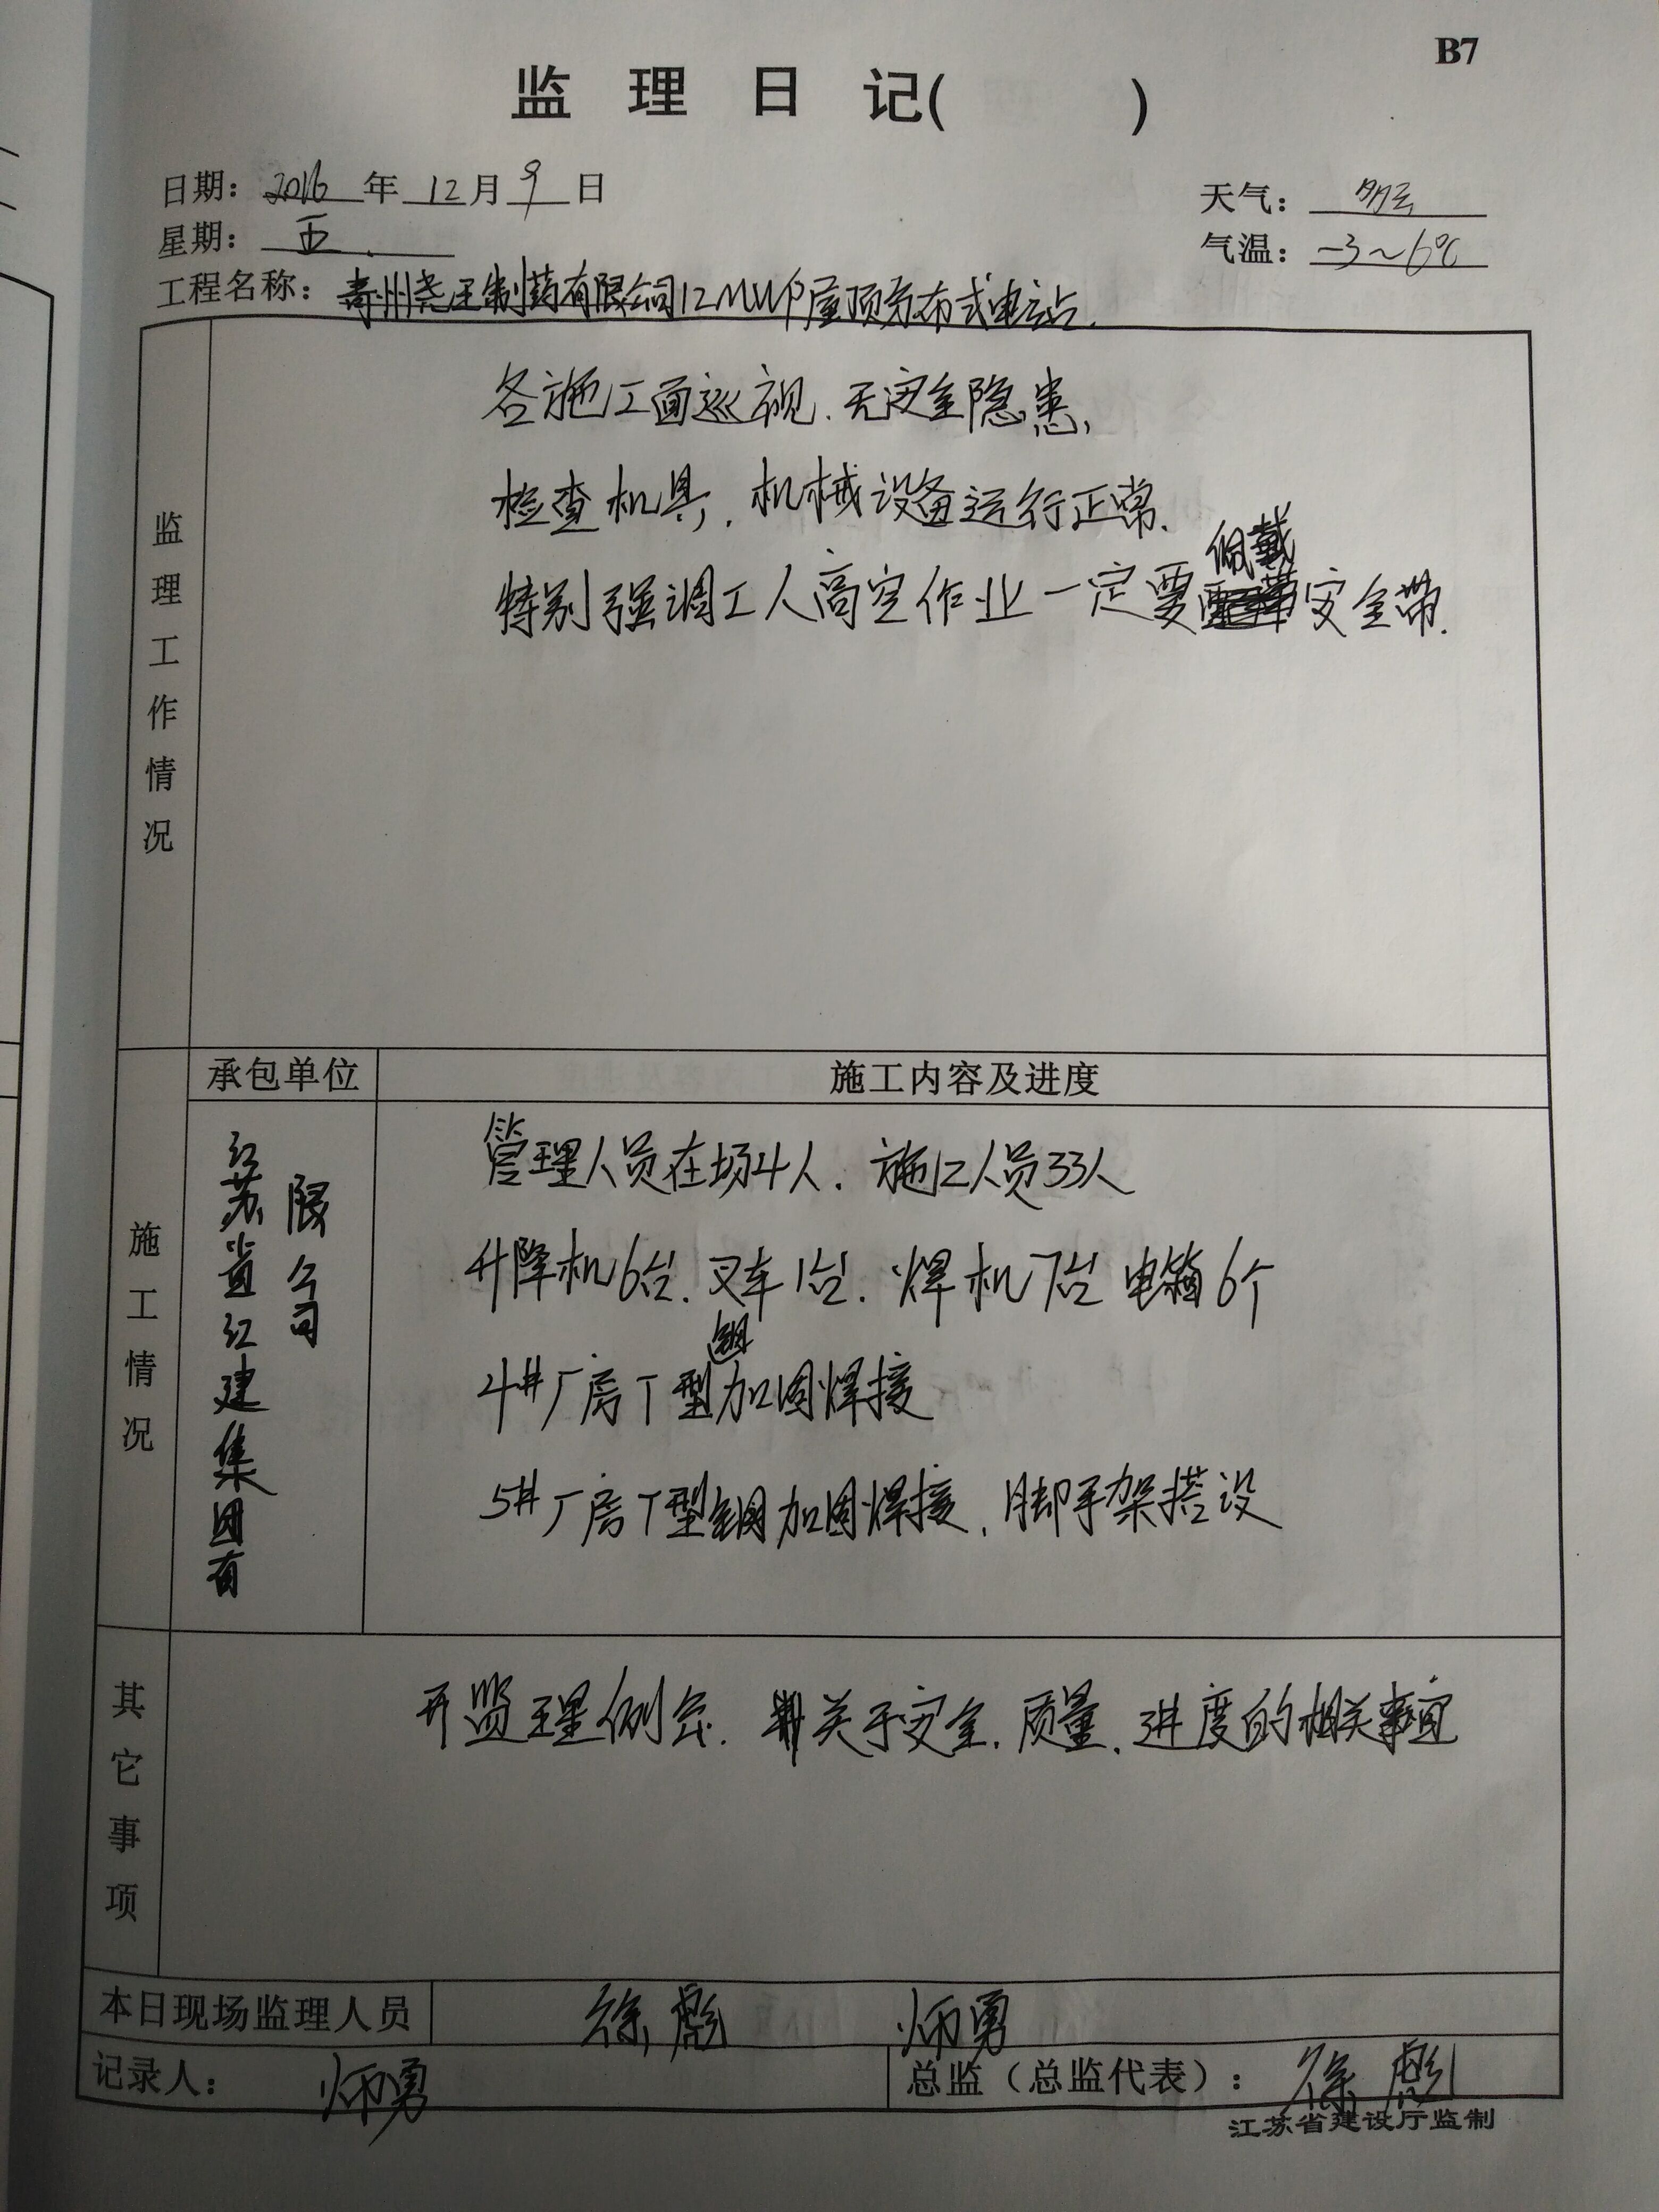 B7
监理日记(          )
日期：2016年12月9日
天气：多云
星期：五.
气温：-3~6℃
工程名称：青州尧王制药有限公司12MWP屋顶分布式电站.
监理工作情况
各施工面巡视.无安全隐患,
检查机具,机械设备运行正常.
佩戴
特别强调工人高空作业一定要安全带.
承包单位
施工内容及进度
施工情况
江苏省江建集团有
限公司
管理人员在场4人.施工人员33人
升降机6台.叉车1台.焊机7台 电箱6个
钢
4#厂房T型加固焊接
5#厂房T型钢加固焊接,脚手架搭设
其它事项
开监理例会.讲关于安全.质量.进度的相关事宜
本日现场监理人员
徐彪
记录人：
总监（总监代表）：徐彪
江苏省建设厅监制